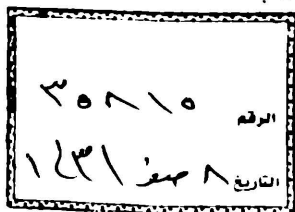 الرقم ٣٥٨١٥
التاريخ ٨ صفر ١٤٣١